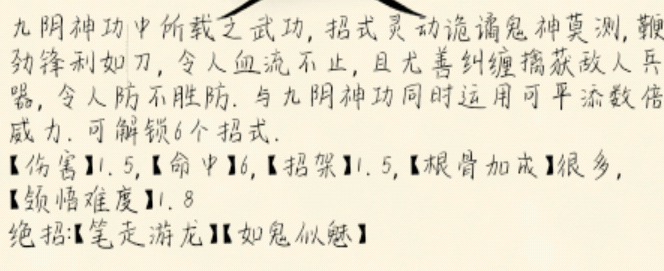 九阴神功中所载之武功,招式灵动诡谲鬼神莫测,鞭
劲锋利如刀,令人血流不止,且尤善纠缠擒获敌人兵
器,令人防不胜防.与九阴神功同时运用可平添数倍
威力.可解锁6个招式.
【伤害】1.5,【命中】6,【招架】1.5,【根骨加成】很多,
【领悟难度】1.8
绝招:【笔走游龙】【如鬼似魅】